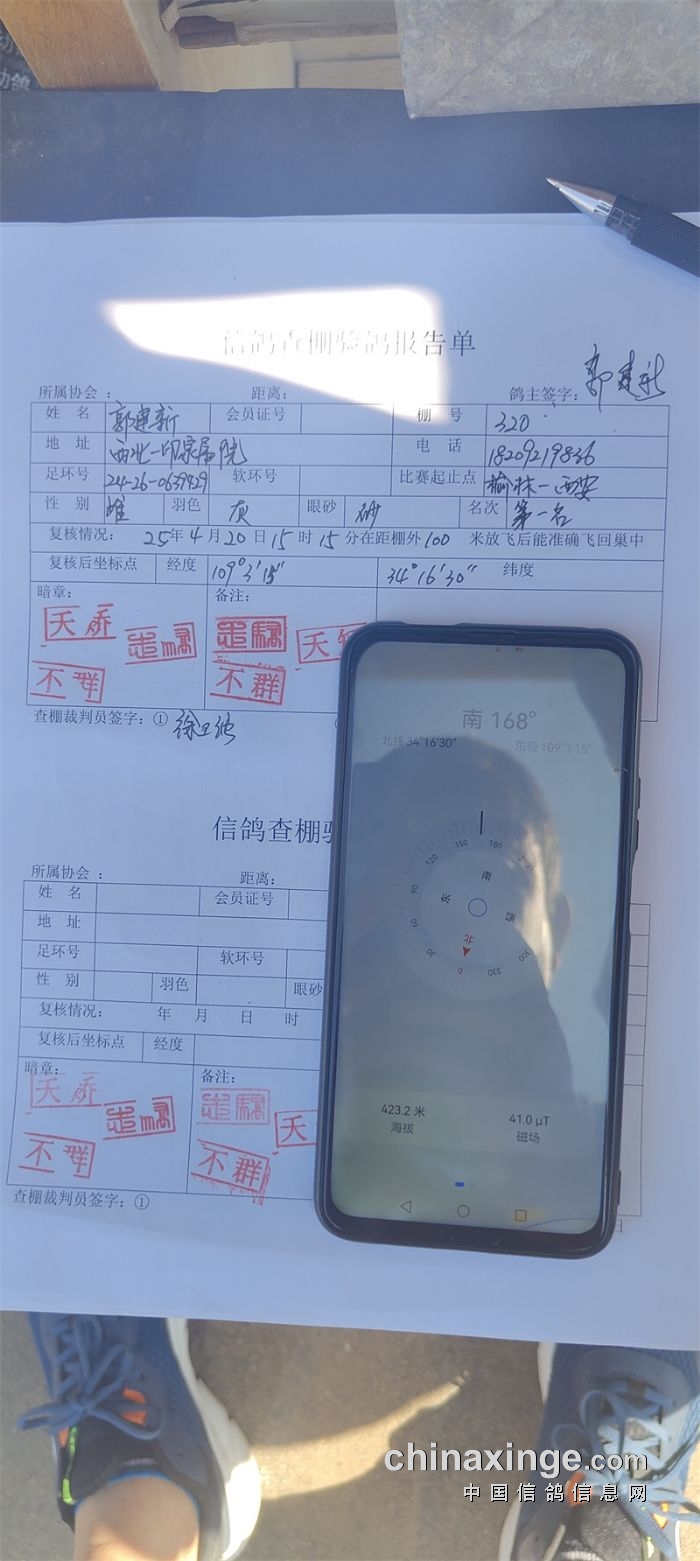 信鸽查棚验鸽报告单
所属协会： 距离： 鸽主签字：郭建新
姓 名 郭建新 会员证号 棚 号 320
地 址 西北一印家属院 电 话 18209219836
足环号 24-26-0639429 软环号 比赛起止点 榆林—西安
性 别 雄 羽色 灰 眼砂 砂 名次 第一名
复核情况： 25年4月20日15时15分在距棚外100 米放飞后能准确飞回巢中
复核后坐标点 经度 109°3′15″ 34°16′30″ 纬度
暗章： 备注：
天骄
不群
不群
查棚裁判员签字：①
南 168°
北纬 34°16′30″ 东经 109°3′15″
150 180
120
90 东 南 西
60
30 北 0 330 300
423.2 米 41.0 μT
海拔 磁场
信鸽查棚验
所属协会 ： 距离：
姓 名 会员证号
地 址
足环号 软环号
性 别 羽色 眼砂
复核情况： 年 月 日 时
复核后坐标点 经度
暗章： 备注：
天骄
不群
天
不群
查棚裁判员签字：①
chinaxinge.com
中国信鸽信息网